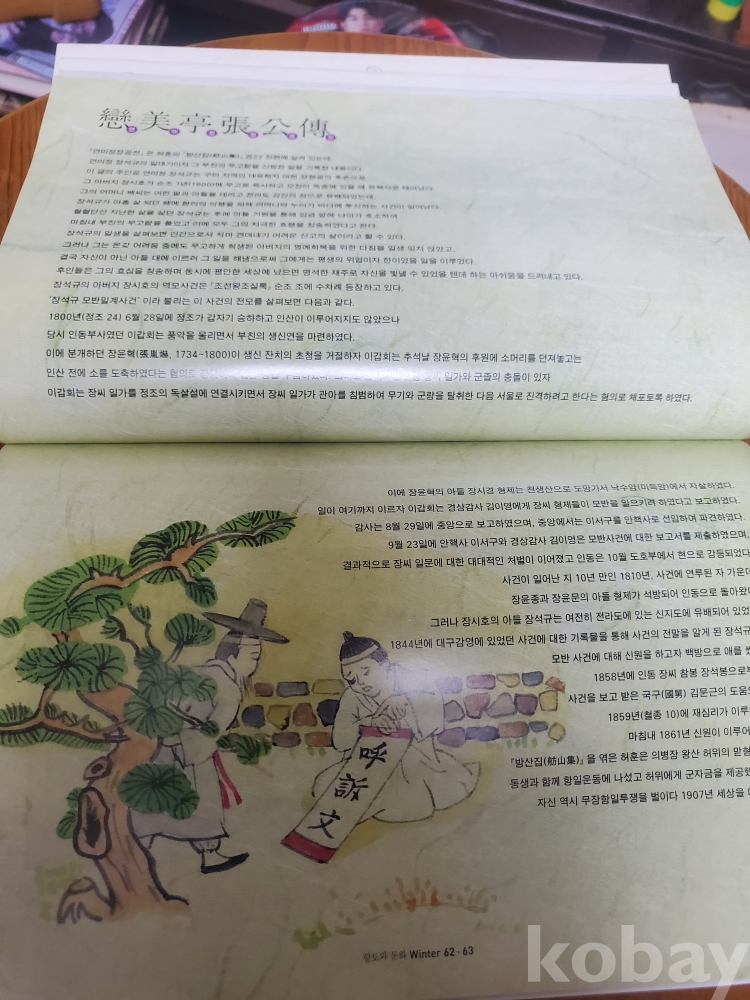 戀美亭張公傳
「연미정장공전」은 허훈의 「방산집(舫山集)」 권22 잡편에 실려 있는데,
연미정 장석규의 일대기이자 그 부친의 무고함을 신원한 일을 기록한 내용이다.
이 글의 주인공 연미정 장석규는
그 아버지 장시호가 순조 1년(1800)에 무고로 옥사하고 모친이 옥중에 있을 때 유복자로 태어났다.
그의 어머니
장석규가 아홉 살 되던 해에
혈혈단신 지난한 삶을 살던 장석규는 후에 아들 기원을 통해 임금 앞에 나아가 호소하여
마침내 부친의 무고함을 풀었고 이에 모두 그의 지극한 효행을 칭송하였다고 한다.
장석규의 일생을 살펴보면 인간으로서 차마 견뎌내기 어려운 신고의 삶이라고 할 수 있다.
그러나 그는 온갖 어려움 중에도 무고하게 희생된 아버지의 명예회복을 위한 다짐을 일생 잊지 않았고,
결국 자신이 아닌 아들 대에 이르러 그 일을 해냄으로써 그에게는 평생의 위업이자 한이었을 일을 이루었다.
후인들은 그의 효심을 칭송하며 동시에 평안한 세상에 났으면 명석한 재주로 자신을 빛낼 수 있었을 텐데 하는 아쉬움을 드러내고 있다.
장석규의 아버지 장시호의 역모사건은 『조선왕조실록』 순조 조에 수차례 등장하고 있다.
'장석규 모반밀계사건' 이라 불리는 이 사건의 전모를 살펴보면 다음과 같다.
1800년(정조 24) 6월 28일에 정조가 갑자기 승하하고 인산이 이루어지지도 않았으나
당시 인동부사였던 이갑회는 풍악을 울리면서 부친의 생신연을 마련하였다.
이에 분개하던 장윤혁(張胤爀, 1734~1800)이 생신 잔치의 초청을 거절하자 이갑회는 추석날 장윤혁의 후원에 소머리를 던져놓고는
인산 전에 소를 도축하였다는 혐의로 장씨 일가와 군졸의 충돌이 있자
이갑회는 장씨 일가를 정조의 독살설에 연결시키면서 장씨 일가가 관아를 침범하여 무기와 군량을 탈취한 다음 서울로 진격하려고 한다는 혐의로 체포토록 하였다.
이에 장윤혁의 아들 장시경 형제는 천생산으로 도망가서 낙수암(미득암)에서 자살하였다.
일이 여기까지 이르자 이갑회는 경상감사 김이영에게 장씨 형제들이 모반을 일으키려 하였다고 보고하였다.
감사는 8월 29일에 중앙으로 보고하였으며, 중앙에서는 이서구를 안핵사로 선임하여 파견하였다.
9월 23일에 안핵사 이서구와 경상감사 김이영은 모반사건에 대한 보고서를 제출하였으며,
결과적으로 장씨 일문에 대한 대대적인 처벌이 이어졌고 인동은 10월 도호부에서 현으로 강등되었다
사건이 일어난 지 10년 만인 1810년, 사건에 연루된 자 가운데
장윤종과 장윤문의 아들 형제가 석방되어 인동으로 돌아왔
그러나 장시호의 아들 장석규는 여전히 전라도에 있는 신지도에 유배되어 있었
1844년에 대구감영에 있었던 사건에 대한 기록물을 통해 사건의 전말을 알게 된 장석규
모반 사건에 대해 신원을 하고자 백방으로 애를 썼
1858년에 인동 장씨 참봉 장석봉으로부
사건을 보고 받은 국구(國舅) 김문근의 도움
1859년(철종 10)에 재심리가 이루
마침내 1861년 신원이 이루어
「방산집(舫山集)」을 엮은 허훈은 의병장 왕산 허위의 맏형
동생과 함께 항일운동에 나섰고 허위에게 군자금을 제공했
자신 역시 무장항일투쟁을 벌이다 1907년 세상을
呼訴文
향토와 문화 Winter 62 · 63
kobay